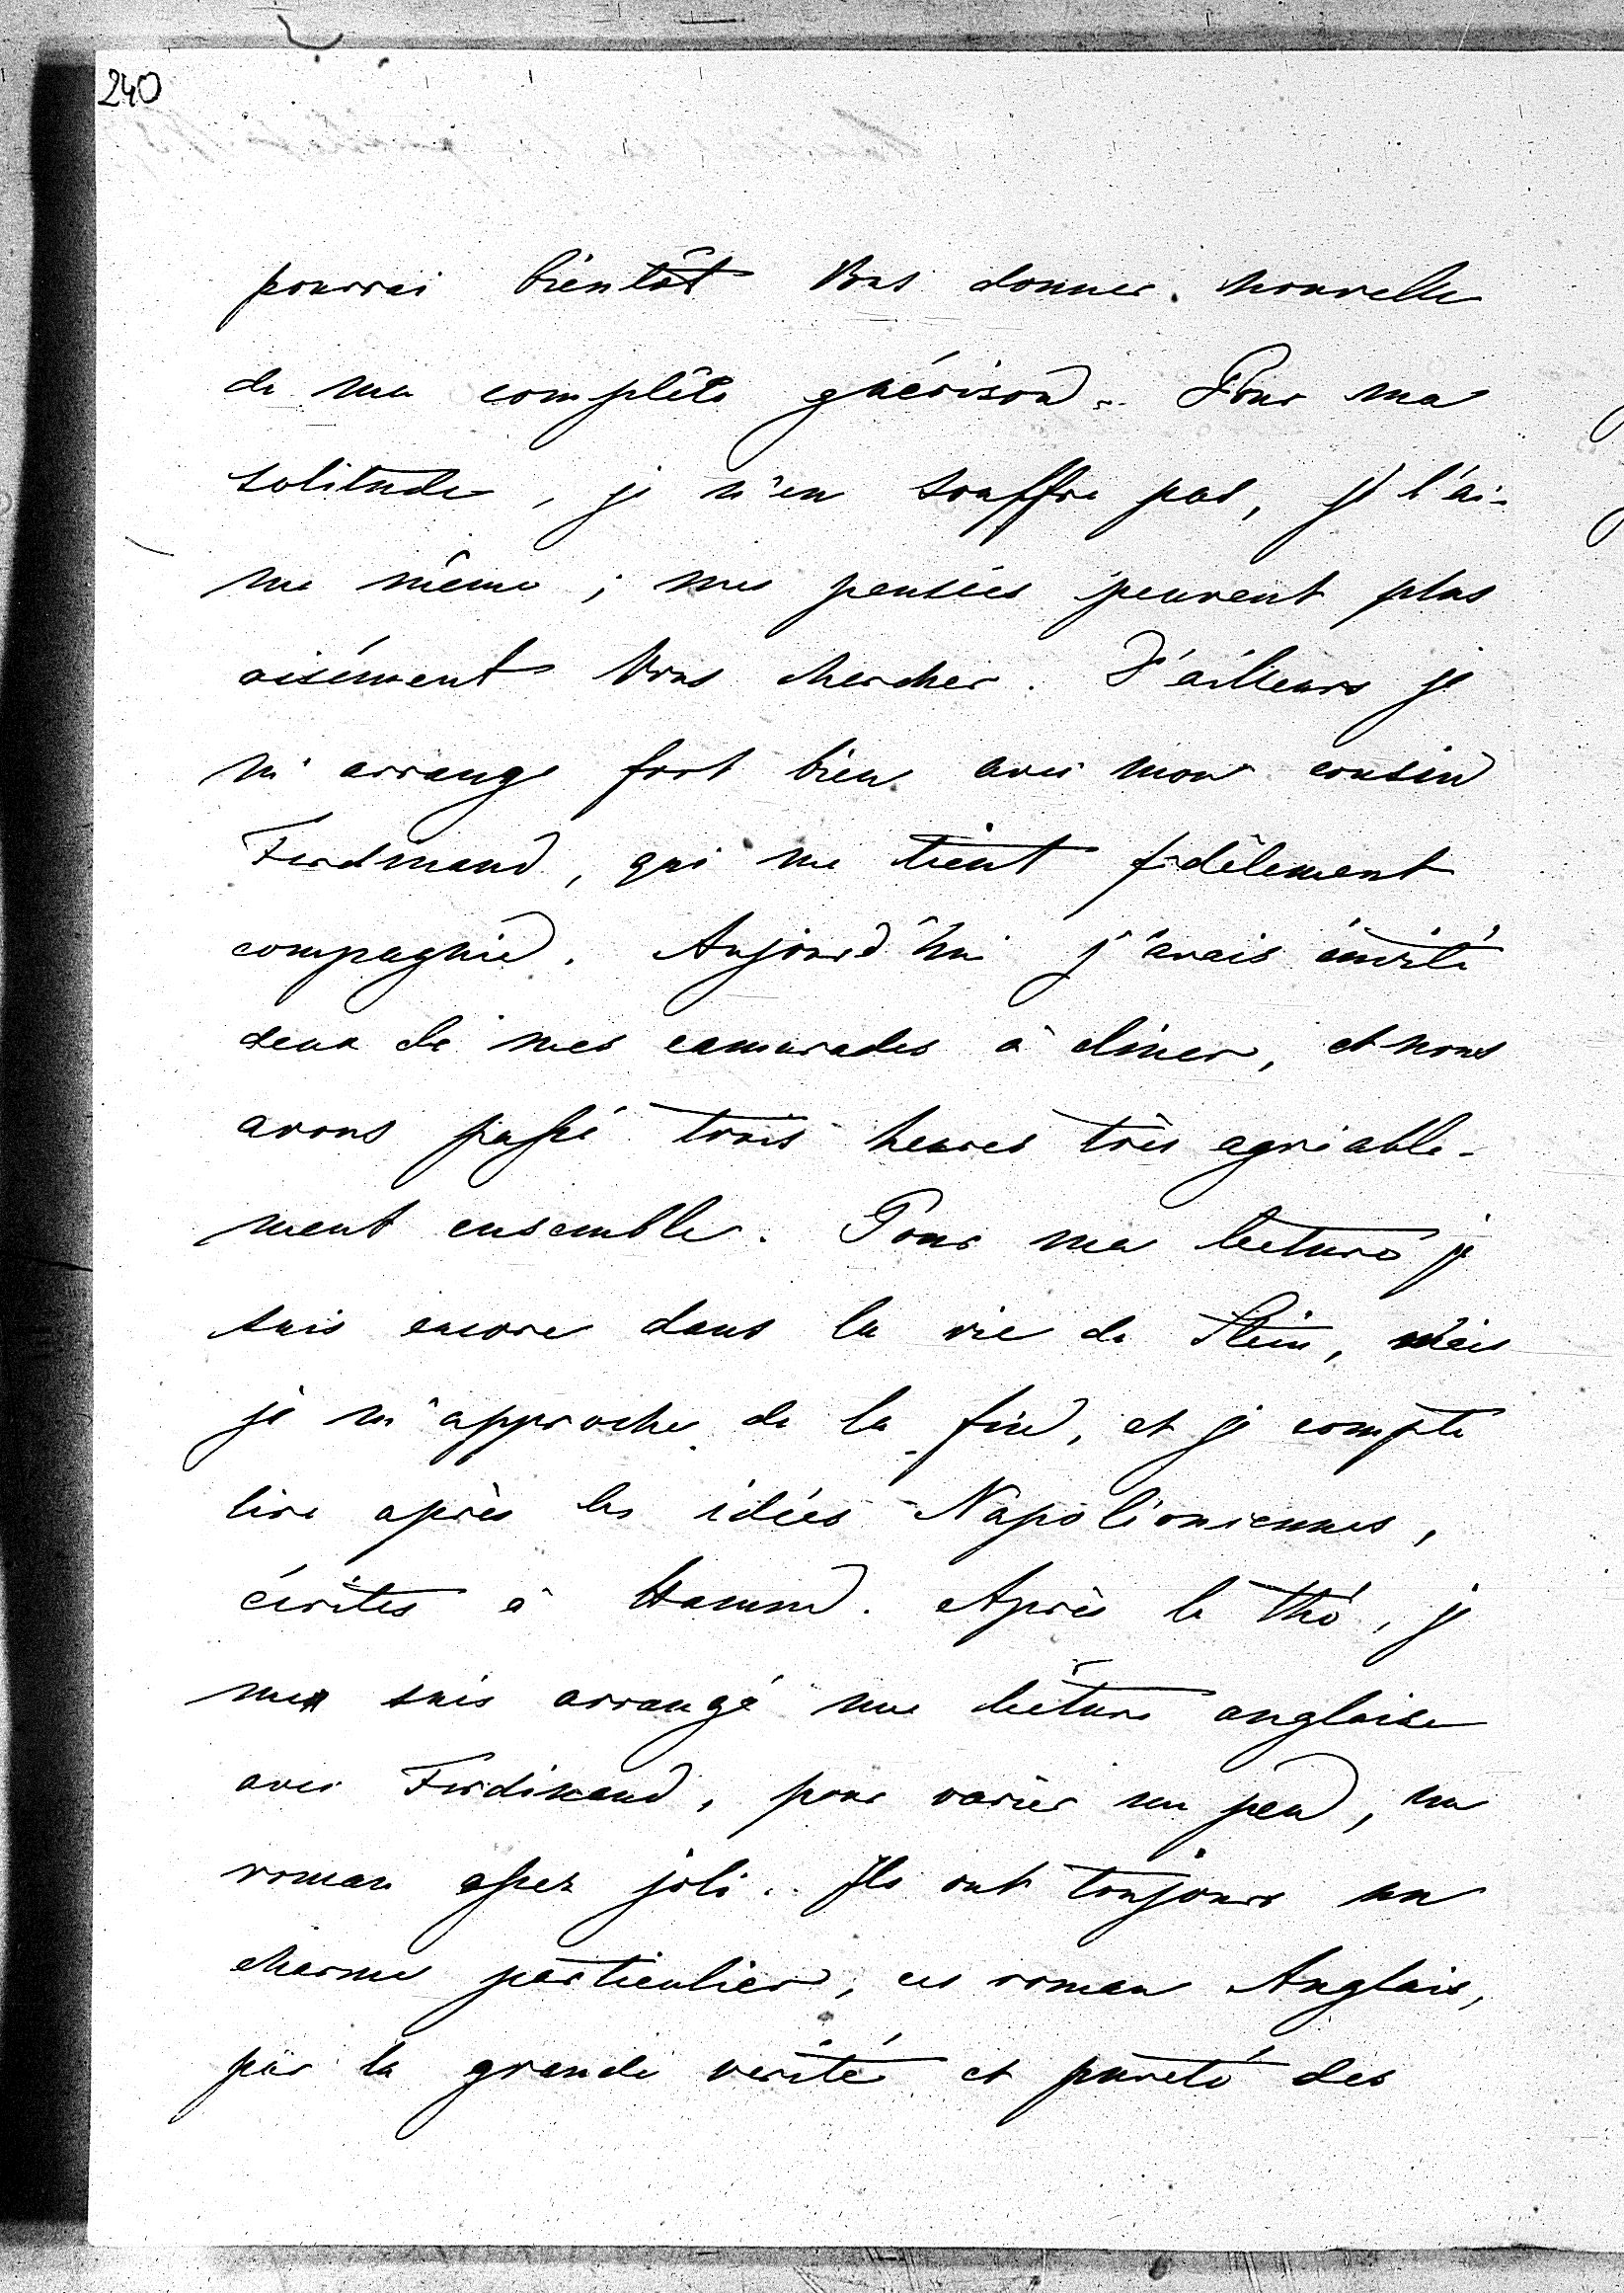 240
pourrai bientôt Vous donner nouvelle
de ma complête guérison. Pour ma
solitude, je n'en souffre pas, je l'ai-
me même ; mes pensées peuvent plus
aisément Vous chercher. D'ailleurs je
m'arrange fort bien avec mon cousin
Ferdinand, qui me tient fidèlement
compagnie. Aujourd'hui j'avais invité
deux de mes camarades à dîner, et nous
avons passé trois heures très agréable-
ment ensemble. Pour ma lecture je
suis encore dans la vie de Stein, mais
je m'approche de la fin, et je compte
lire après les idées Napoléoniennes,
écrites à Hamm. Après le thé, je
me suis arrangé une lecture anglaise
avec Ferdinand, pour varier un peu, un
roman assez joli. Ils ont toujours un
charme particulier, ces roman Anglais,
par la grande verité et pureté des